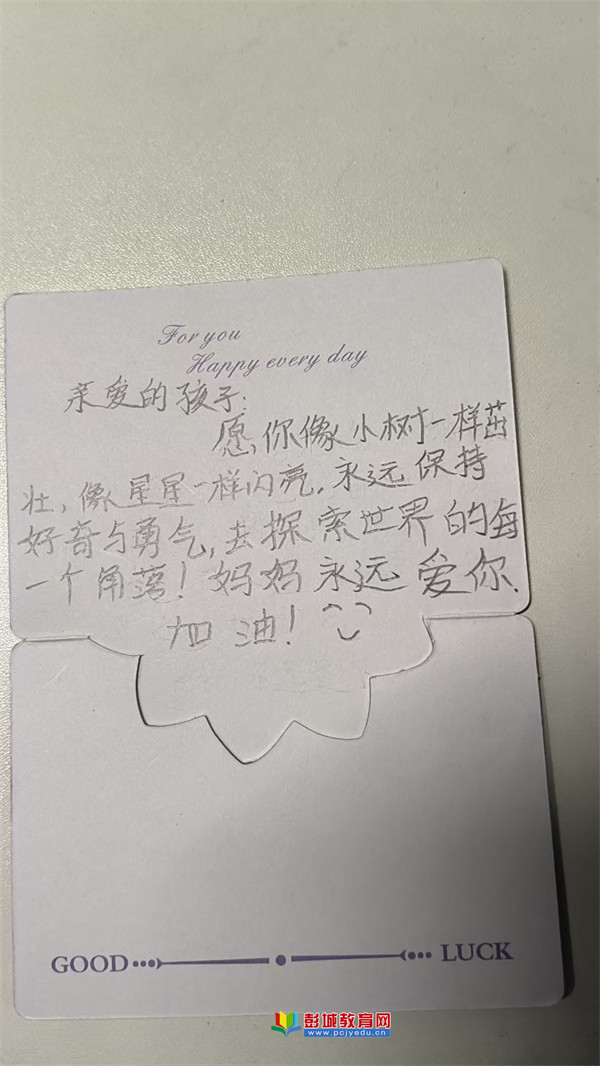 For you
Happy every day
亲爱的孩子:
愿你像小树一样茁
壮,像星星一样闪亮,永远保持
好奇与勇气,去探索世界的每
一个角落!妈妈永远爱你.
加油!
GOOD LUCK
彭城教育网
www.pcjyedu.cn